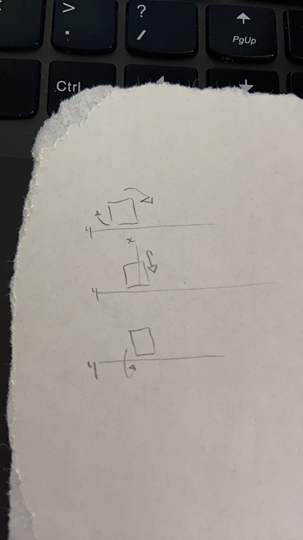 >
.
?
/
PgUp
Ctrl
x
y
x
y
y